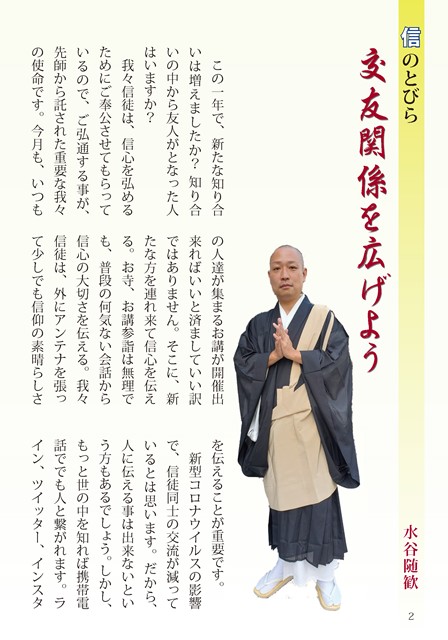 信のとびら
交友関係を広げよう
水谷随歓
この一年で、新たな知り合
いは増えましたか？知り合
いの中から友人がとなった人
はいますか？
我々信徒は、信心を弘める
ためにご奉公させてもらって
いるので、ご弘通する事が、
先師から託された重要な我々
の使命です。今月も、いつも
の人達が集まるお講が開催出
来ればいいと済ましていい訳
ではありません。そこに、新
たな方を連れ来て信心を伝え
る。お寺、お講参詣は無理で
も、普段の何気ない会話から
信心の大切さを伝える。我々
信徒は、外にアンテナを張っ
て少しでも信仰の素晴らしさ
を伝えることが重要です。
新型コロナウイルスの影響
で、信徒同士の交流が減って
いるとは思います。だから、
人に伝える事は出来ないとい
う方もあるでしょう。しかし、
もっと世の中を知れば携帯電
話ででも人と繋がれます。ラ
イン、ツイッター、インスタ
2